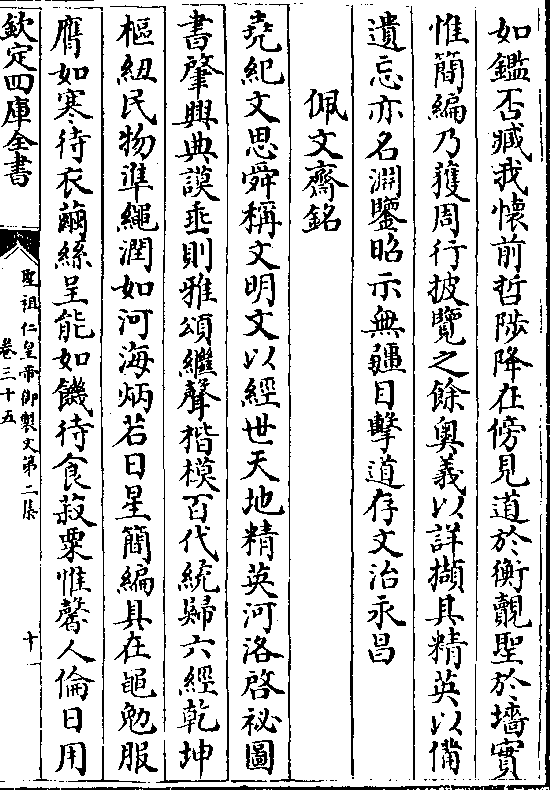 如鑑否臧我懷前哲陟降在傍見道於衡覿聖於墻實
惟簡編乃獲周行披覽之餘奧義以詳擷其精英以備
遺忘亦名淵鑒昭示無疆目擊道存文治永昌
佩文齋銘
堯紀文思舜稱文明文以經世天地精英河洛啓祕圖
書肇興典謨垂則雅頌繼聲楷模百代統歸六經乾坤
樞紐民物準繩潤如河海炳若日星簡編具在黽勉服
膺如寒待衣繭絲呈能如饑待食菽粟惟馨人倫日用
欽定四庫全書
聖祖仁皇帝御製文第二集
卷三十五
十一